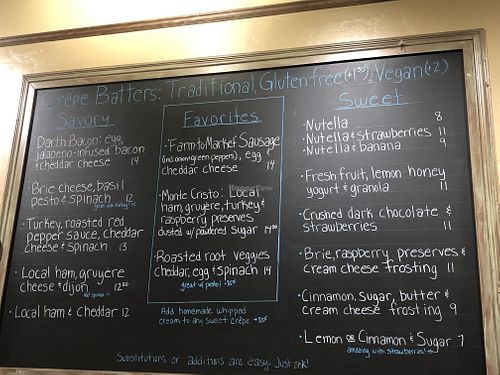 Crêpe Batters: Traditional, Gluten free (+1.50), Vegan (+2)
Savory
Darth Bacon: egg,
jalapeno-infused bacon
& cheddar cheese 14
• Brie cheese, basil
pesto & spinach 12
• Turkey, roasted red
pepper sauce, cheddar
cheese & spinach 13
• Local ham, gruyere
cheese & dijon 12.50
add spinach +1
• Local ham & cheddar 12
Favorites
• Farm to Market Sausage
(incl. onion & green peppers), egg &
cheddar cheese 14
Monte Cristo: Local
ham, gruyere, turkey &
raspberry preserves
dusted w/ powdered sugar 14.50
• Roasted root veggies
cheddar, egg & spinach 14
great w/ pesto!
Add homemade whipped
cream to any sweet crêpe
Sweet
• Nutella 8
• Nutella & strawberries 11
• Nutella & banana 9
• Fresh fruit, lemon honey
yogurt & granola 11
• Crushed dark chocolate &
strawberries 11
• Brie, raspberry preserves &
cream cheese frosting 11
• Cinnamon, sugar, butter &
cream cheese frosting 9
• Lemon or Cinnamon & Sugar 7
amazing with strawberries!
Substitutions or additions are easy. Just ask!
HappyCow